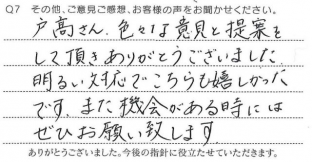 Q7 その他、ご意見ご感想、お客様の声をお聞かせください。
戸高さん、色々な意見と提案を
して頂きありがとうございました。
明るい対応でこちらも嬉しかった
です。また機会がある時には
ぜひお願い致します
ありがとうございました。今後の指針に役立たせていただきます。